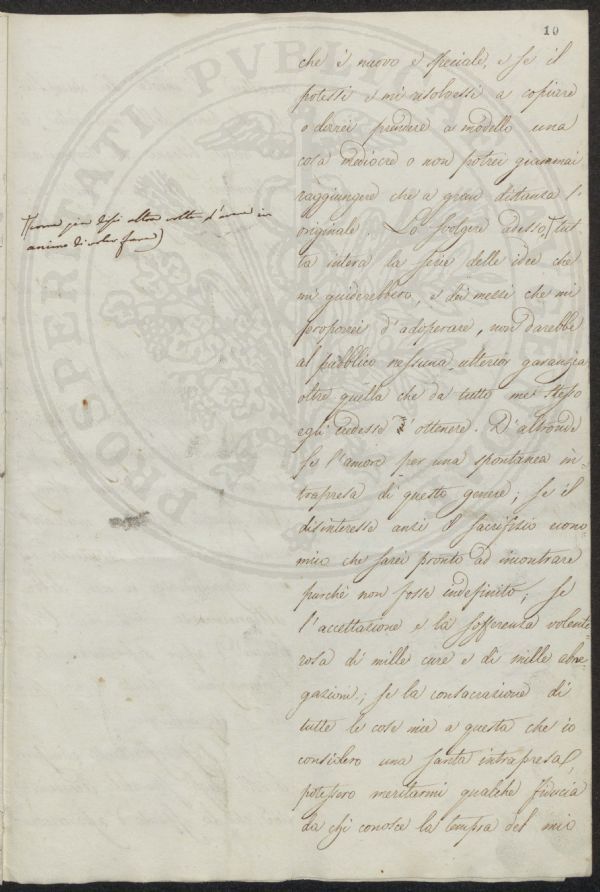 10
che è nuovo e speciale, e se il
potessi e mi risolvessi a copiare
o dovrei prendere a modello una
cosa mediocre o non potrei giammai
raggiungere che a gran distanza l'
originale. Lo svolgere adesso tut-
ta intera la serie delle idee che
mi guiderebbero, e dei mezzi che mi
proporrei d'adoperare, non darebbe
al pubblico nessuna ulterior garanzia
oltre quella che da tutto me stesso
egli credesse d'ottenere. D'altronde
se l'amore per una spontanea in-
trapresa di questo genere; se il
disinteresse anzi il sacrifizio econo-
mico che sarei pronto ad incontrare
purchè non fosse indefinito; se
l'accettazione e la sofferenza volente-
rosa di mille cure e di mille abne-
gazioni; se la consacrazione di
tutte le cose mie a questa che io
considero una santa intrapresa,
potessero meritarmi qualche fiducia
da chi conosce la tempra del mio
(come già dissi altra volta d'avere in
animo di voler fare)
PROSPERITATI PVBLICAE